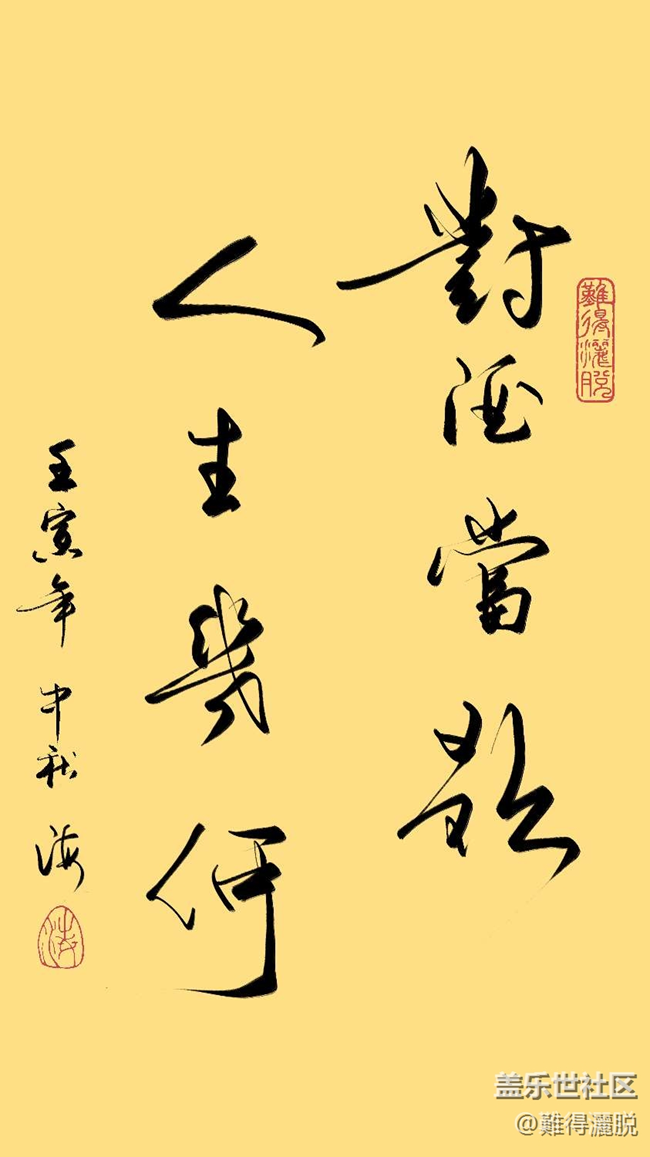 難得灑脫
對酒當歌
人生幾何
壬寅年 中秋 海
盖乐世社区
@難得灑脱